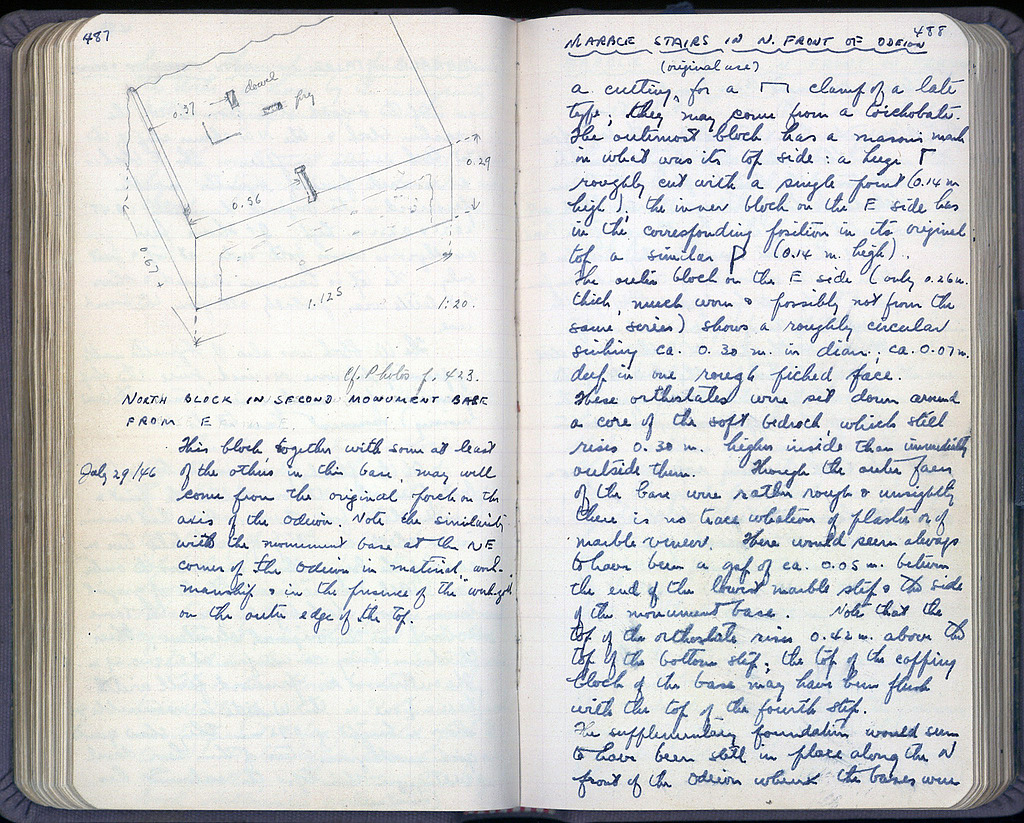 487
dowel
pry
0.37
0.56
0.29
0.67 +
1.125
1:20.
Cf. Photos p. 423.
NORTH BLOCK IN SECOND MONUMENT BASE
FROM E
July 29/46
This block together with some at least
of the others in this base, may well
come from the original porch on the
axis of the Odeion. Note the similarity
with the monument base at the NE
corner of the Odeion in material, work-
manship & in the presence of the
on the outer edge of the top.
488
MARBLE STAIRS IN N. FRONT OF ODEION
(original use)
a cutting, for a ⊓ clamp of a late
type; they may come from a toichobate.
The outermost block has a mason's mark
in what was its top side: a huge Γ
roughly cut with a single point (0.14 m
high); the inner block on the E side has
in the corresponding position in its original
top a similar P (0.14 m. high).
The outer block on the E side (only 0.26 m.
thick, much worn & possibly not from the
same series) shows a roughly circular
sinking ca. 0.30 m. in diam; ca. 0.07 m.
deep in one rough picked face.
These orthostates were set down around
a core of the soft bedrock, which still
rises 0.30 m. higher inside than immediately
outside them. Though the outer faces
of the base were rather rough & unsightly
there is no trace whatever of plaster or of
marble veneer. There would seem always
to have been a gap of ca. 0.05 m. between
the end of the lowest marble step & the side
of the monument base. Note that the
top of the orthostate rises 0.42 m. above the
top of the bottom step; the top of the capping
block of the base may have been flush
with the top of the fourth step.
The supplementary foundation would seem
to have been still in place along the N
front of the Odeion when the bases were